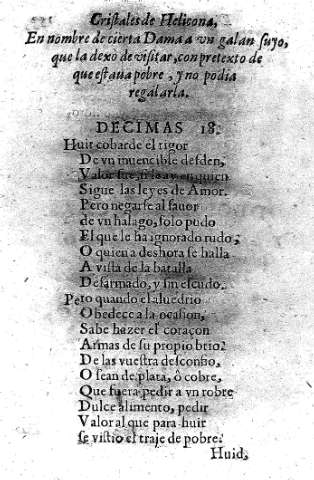 Cristales de Helicona,
En nombre de cierta Dama a vn galan suyo,
que la dexo de visitar, con pretexto de
que estaua pobre, y no podia
regalarla.
DECIMAS 18.
Huir cobarde el rigor
De vn inuencible desden,
Valor fue, si le ay en quien
Sigue las leyes de Amor.
Pero negarse al fauor
de vn halago, solo pudo
El que le ha ignorado rudo,
O quien a deshora se halla
A vista de la batalla
Desarmado, y sin escudo.
Pero quando el aluedrio
Obedece a la ocasion,
Sabe hazer el coraçon
Armas de su propio brio?
De las vuestra desconfio,
O sean de plata, ò cobre,
Que fuera pedir a vn robre
Dulce alimento, pedir
Valor al que para huir
se vistio el traje de pobre.
Huid,